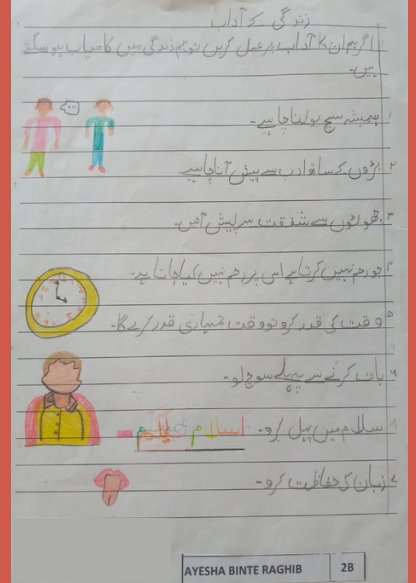 زندگی کے آداب
اگر ہم ان کا آداب پر عمل کریں تو ہم زندگی میں کامیاب ہو سکتے
ہیں۔
۱ ہمیشہ سچ بولنا چاہیے۔
۲ بڑوں کے ساتھ ادب سے پیش آنا چاہیے
۳ چھوٹوں سے شفقت سے پیش آئیں۔
۴ جو رحم نہیں کرتا ہے اس پر رحم نہیں کیا جاتا ہے۔
۵ وقت کی قدر کرو تو وقت تمہاری قدر کرے گا۔
۶ بات کرنے سے پہلے سوچ لو۔
۸ سلام میں پہل کرو۔ اسلام علیکم
۷ زبان کی حفاظت کرو۔
AYESHA BINTE RAGHIB 2B